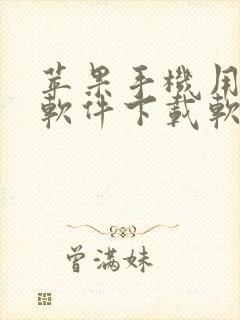 苹果手機用
軟件下載軟
曾满妹